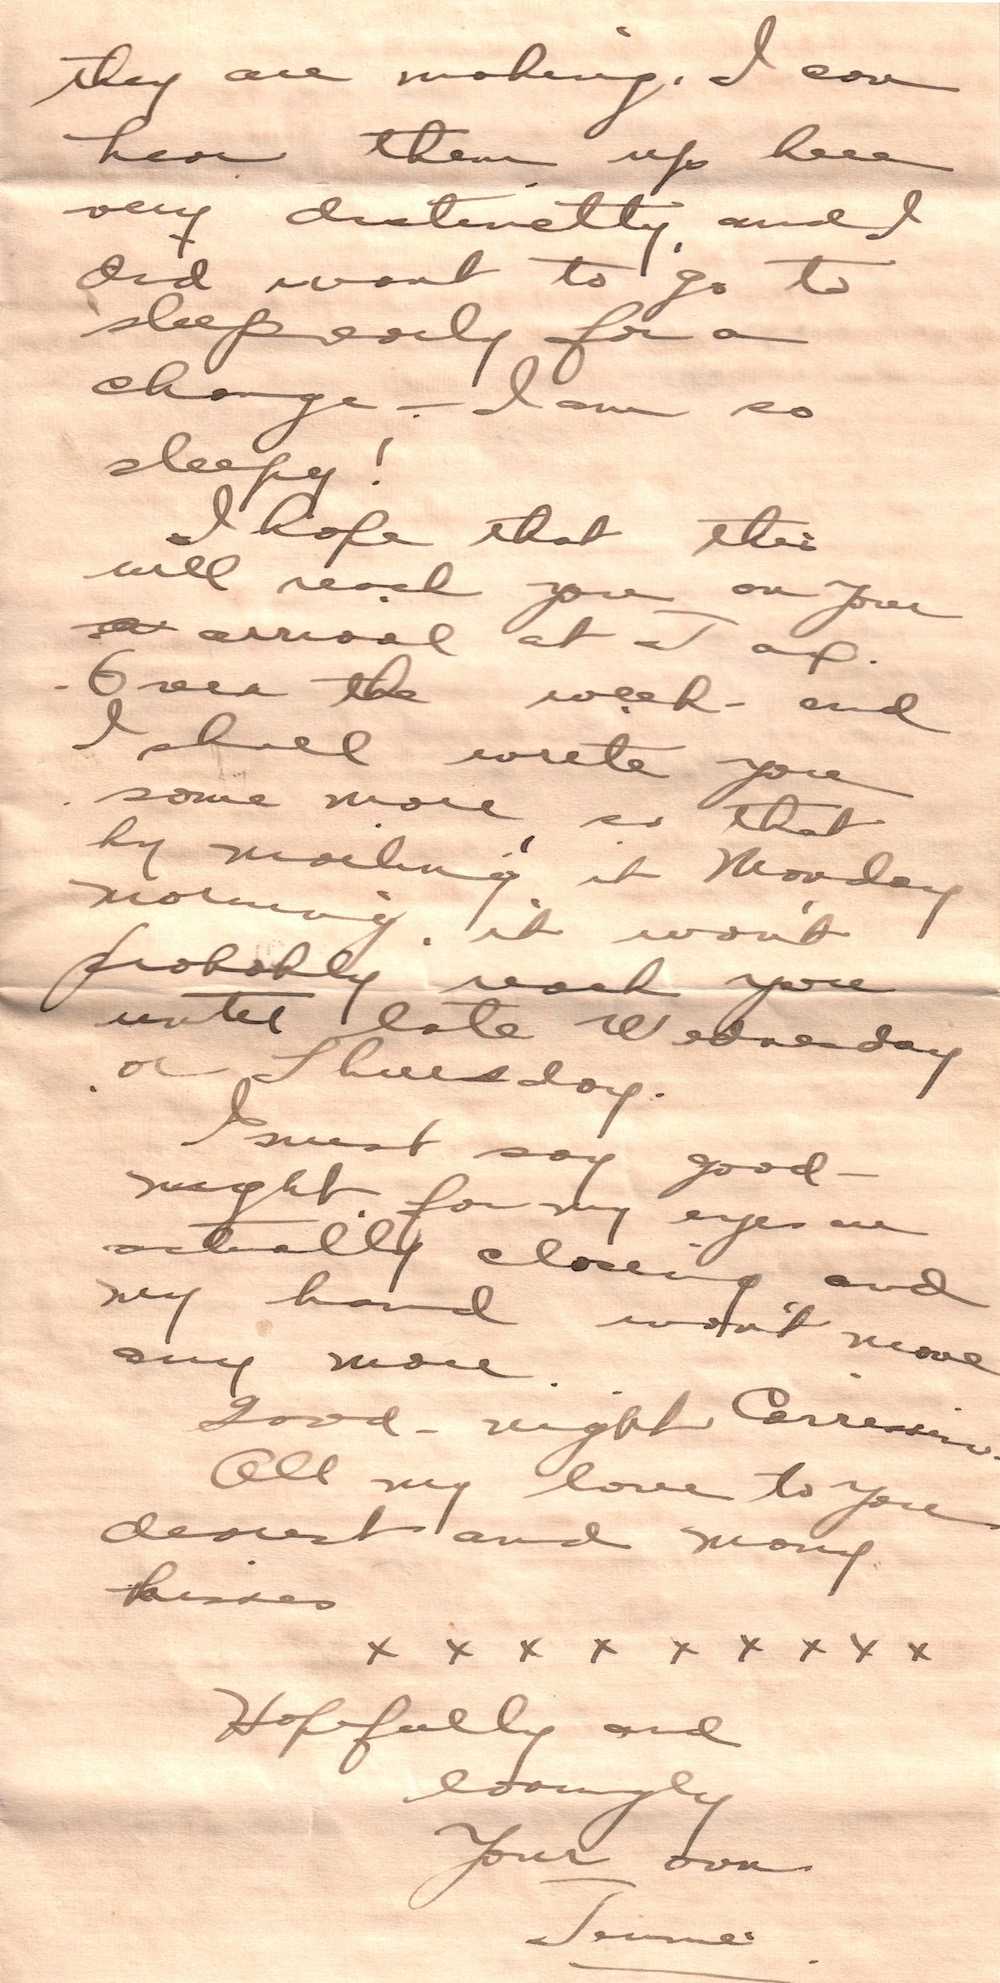 they are making. I can
hear them up here
very distinctly, and I
did want to go to
sleep early for a
change — I am so
sleepy!
I hope that this
will reach you on your
arrival at
Over the week-end
I shall write you
some more, so that
by mailing it Monday
morning, it won't
probably reach you
until late Wednesday
or Thursday.
I must say good-
night, for my eyes are
actually closing and
my hand won't move
any more.
Good-night
All my love to you
dearest and many
kisses
x x x x x x x x x
Hopefully and
lovingly
Your own